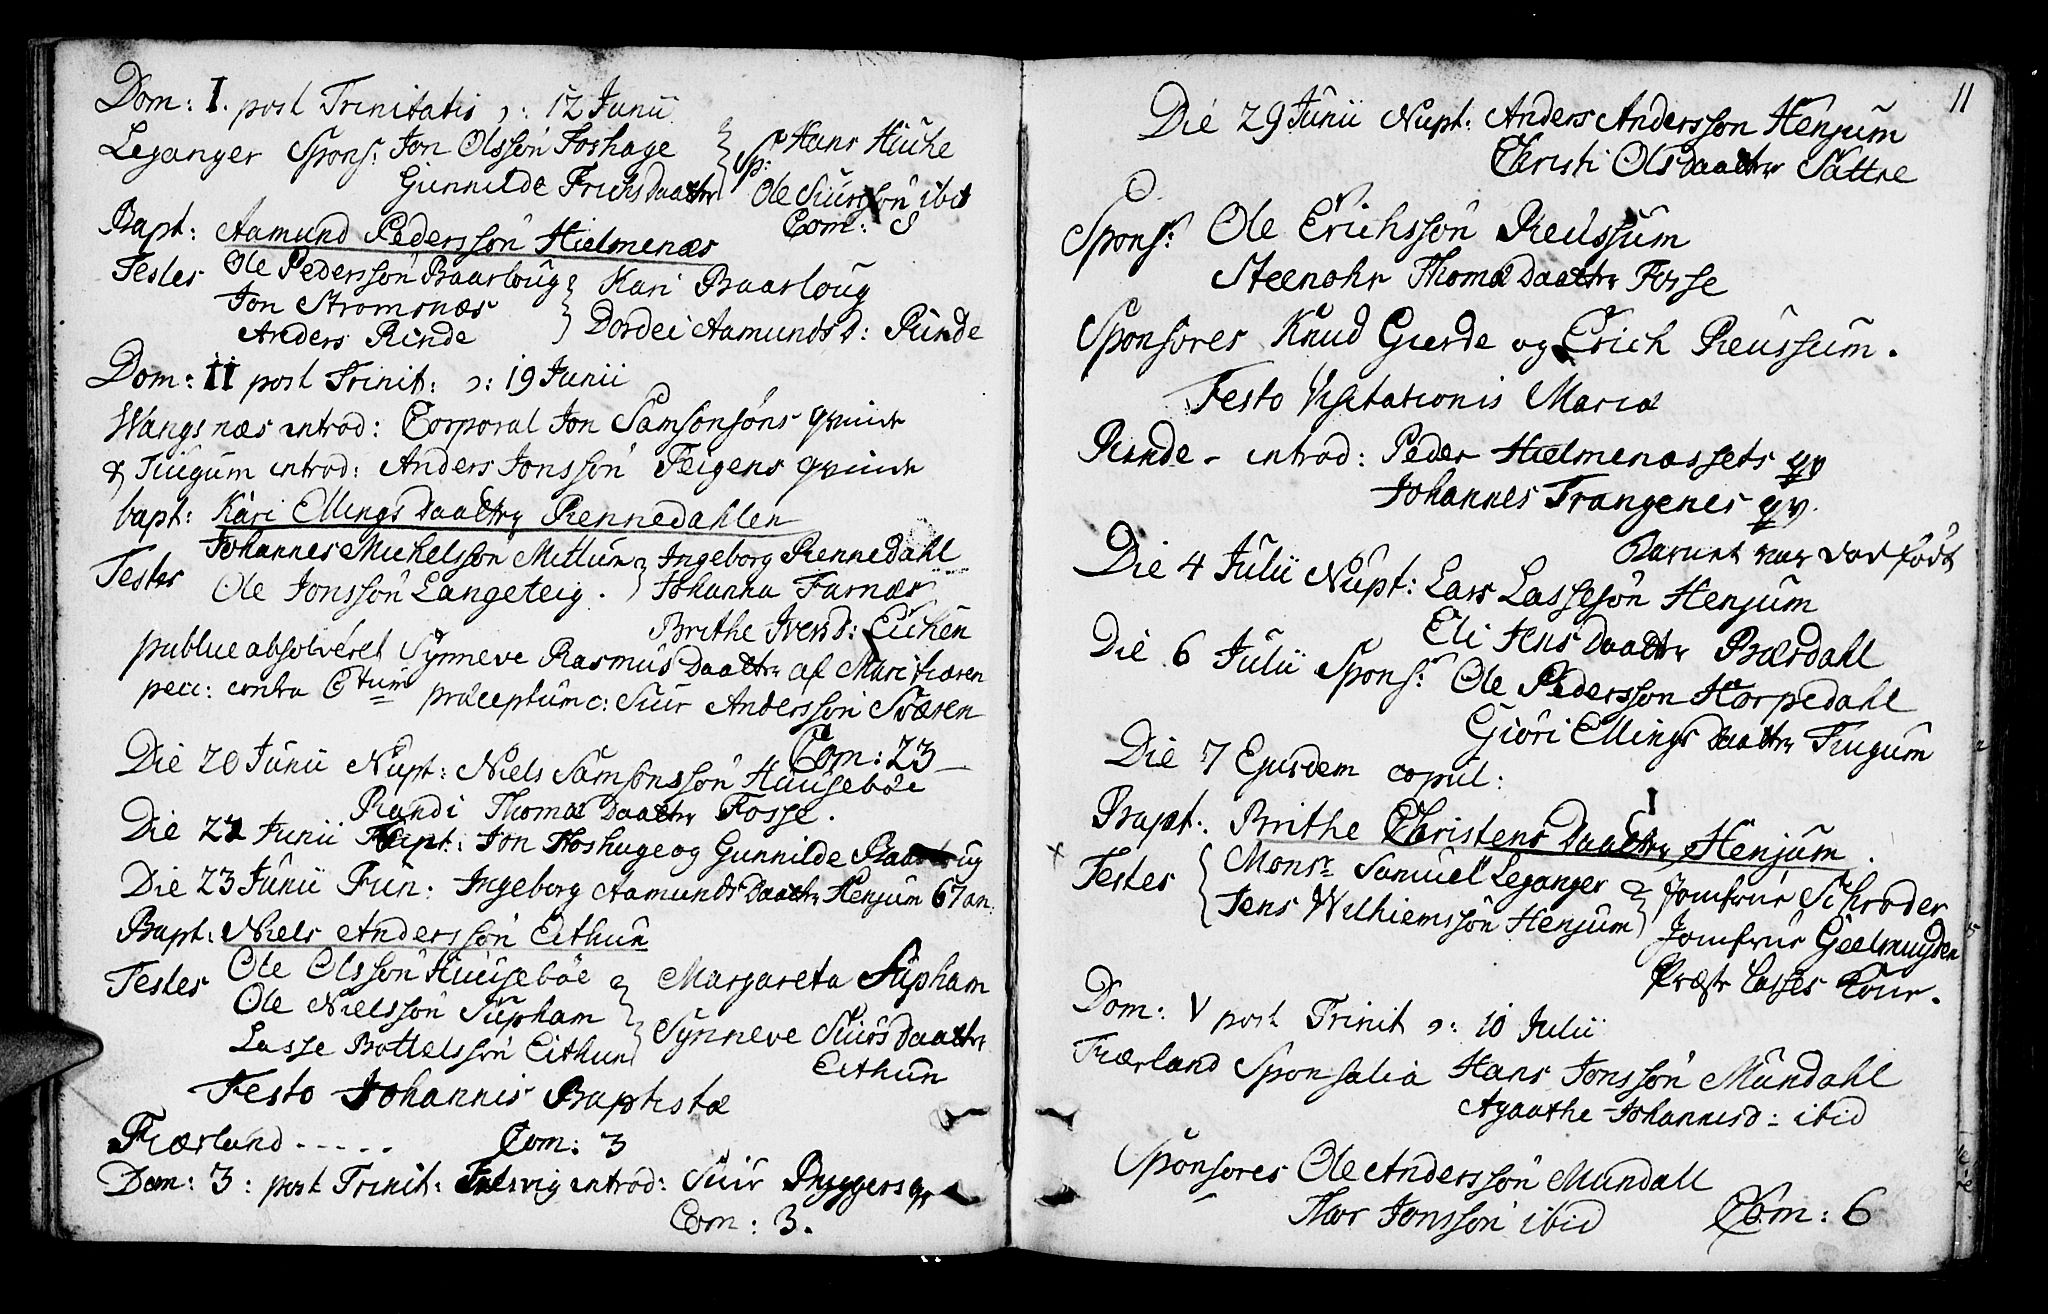 Dom: I. post Trinitatis ɔ: 12 Junii
Leganger Spons: Jon Olssøn Foshage
Gunnilde Frichsdaatter
Sp: Hans Hüche
Ole Siurssøn ibid
Com: 8
Bapt: Aamund Pederssøn Hielmenæs
Testes Ole Pederssøn Baarloug
Jon Stromsnæs
Anders Rinde
Kari Baarloug
Dordei Aamundsd: Rinde
Dom: II post Trinit: ɔ: 19 Junii
Wangsnæs introd: Corporal Jon Samsonsøns qvinde
& Tiugum introd: Anders Jonssøn Feigens qvinde
bapt: Kari Ellings Daatter Rennedahlen
Testes Johannes Michelssøn Mittun
Ole Jonssøn Langeteig.
Ingeborg Rennedahl
Johanna Farnæs
Brithe Iversd: Eichen
publice absolveret Synneve Rasmus Daatter af Muri
pecc: contra 6tum præceptum c: Siur Anderssøn Sværen
Com: 23
Die 20 Junii Nupt: Niels Samsonssøn Huusebøe
Randi Thomæ Daatter Fosse.
Die 22 Junii Nupt: Jon Foshuge og Gunnilde Baarloug
Die 23 Junii Fun: Ingeborg Aamunds Daatter Henjum 67 an:
Bapt: Niels Anderssøn Eithun
Testes Ole Olssøn Huusebøe
Ole Nielssøn Supham
Lasse Bottelssøn Eithun
Margareta Supham
Synneve Siurs Daatter
Eithun
Festo Johannis Baptistæ
Fiærland - - - - - Com: 3
Dom: 3: post Trinit: introd: Siur Byggers qv
Com: 3.
11
Die 29 Junii Nupt: Anders Anderssøn Henjum
Christi Olsdaatter Sattre
Spons: Ole Erichssøn Reussum
Steenohr Thomæ Daatter Fosse
Sponsores Knud Gierde og Erich Reussum.
Festo Visitationis Mariæ
Rinde - introd: Peder Hielmenæssets qv
Johannes Trangenes qv.
Barnet var død født
Die 4 Julii Nupt: Lars Lassesøn Henjum
Eli Jens Daatter Bærdahl
Die 6 Julii Spons: Ole Pederssøn Horpedahl
Giøri Ellings Daatter Tiugum
Die 7 Ejusdem copul:
Bapt: Brithe Christens Daatter Henjum.
Testes Monsr Samuel Leganger
Jens Wilhiemssøn Henjum
Jomfrue Schrøder
Jomfrue Geelmuyden
Præstr Lasses Kone.
Dom: V post Trinit ɔ: 10 Julii
Fiærland Sponsalia Hans Jonssøn Mundahl
Agaathe Johannesd: ibid
Sponsores Ole Anderssøn Mundall
Thor Jonssøn ibid Com: 6